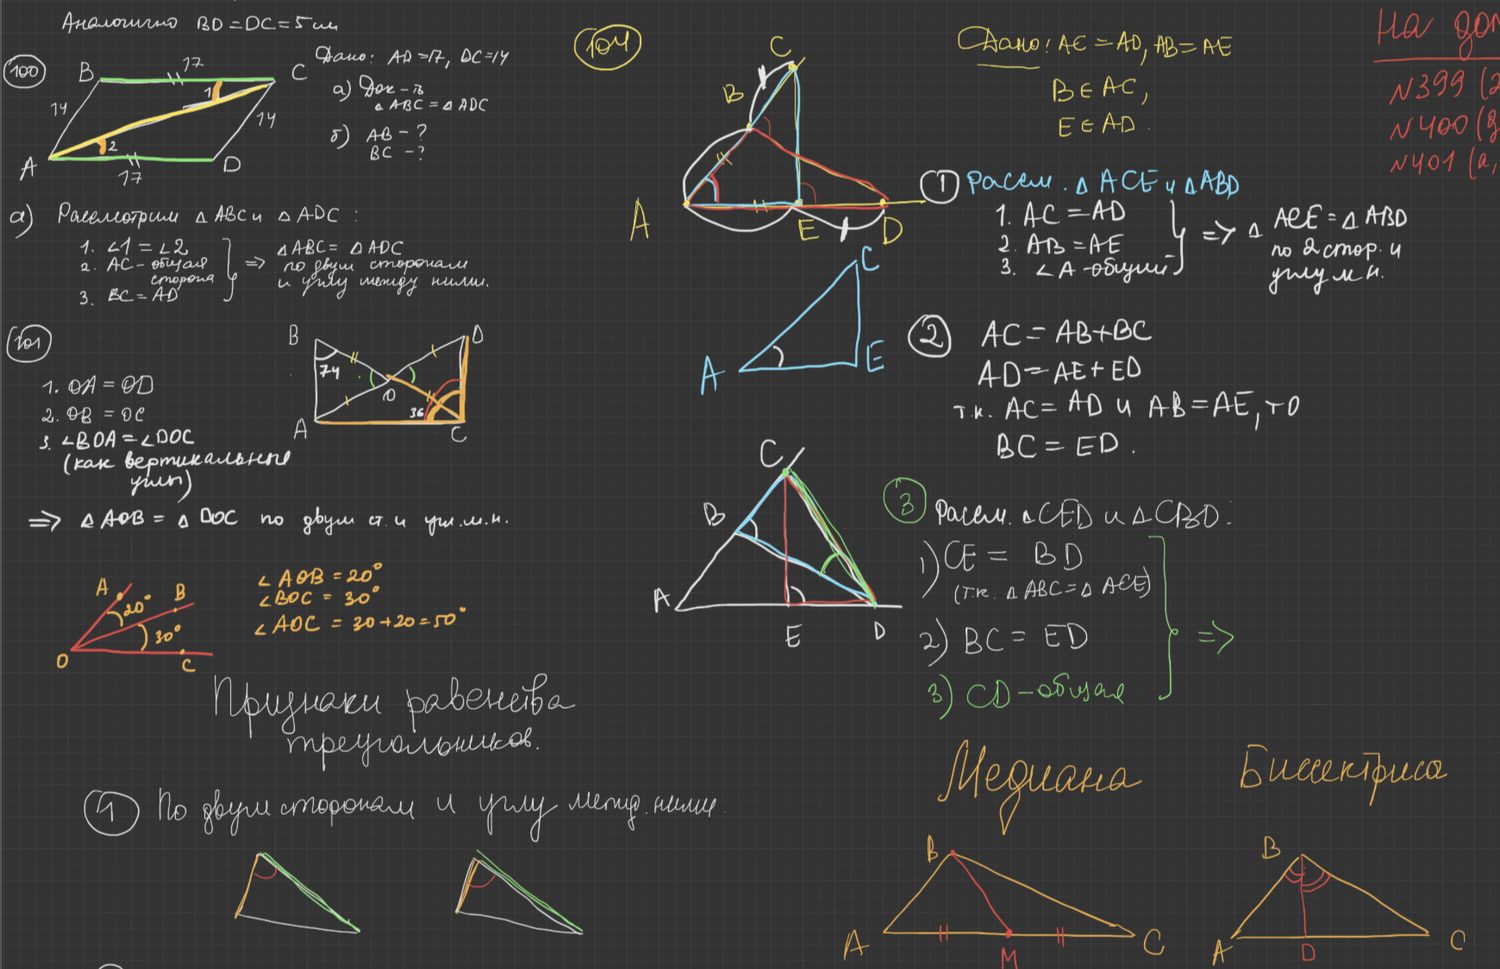 Аналогично BD=DC=5см
100
B
17
C
14
1
14
A
2
D
17
Дано: AD=17, DC=14
а) Док-ть
△ABC=△ADC
б) AB-?
BC-?
а) Рассмотрим △ABC и △ADC:
1. ∠1=∠2
2. AC-общая
сторона
3. BC=AD
=> △ABC=△ADC
по двум сторонам
и углу между ними.
101
B
D
74
O
36
A
C
1. OA=OD
2. OB=OC
3. ∠BOA=∠DOC
(как вертикальные
углы)
=> △AOB=△DOC по двум ст. и угл.м.н.
A
B
20°
30°
O
C
∠AOB=20°
∠BOC=30°
∠AOC=30+20=50°
Признаки равенства
треугольников.
1 По двум сторонам и углу межд. ними.
104
C
B
A
E
D
Дано: AC=AD, AB=AE
B∈AC,
E∈AD.
На дом
N399 (2
N400 (
N401 (а,
1 Рассм. △ACE и △ABD
1. AC=AD
2. AB=AE
3. ∠A-общий
=> △ACE=△ABD
по 2 стор. и
углу м.н.
C
A
E
2 AC=AB+BC
AD=AE+ED
т.к. AC=AD и AB=AE, то
BC=ED.
C
B
A
E
D
3 Рассм. △CED и △CBD:
1) CE=BD
(т.к. △ABC=△ACE)
2) BC=ED
3) CD-общая
=>
Медиана
B
A
M
C
Биссектриса
B
A
D
C